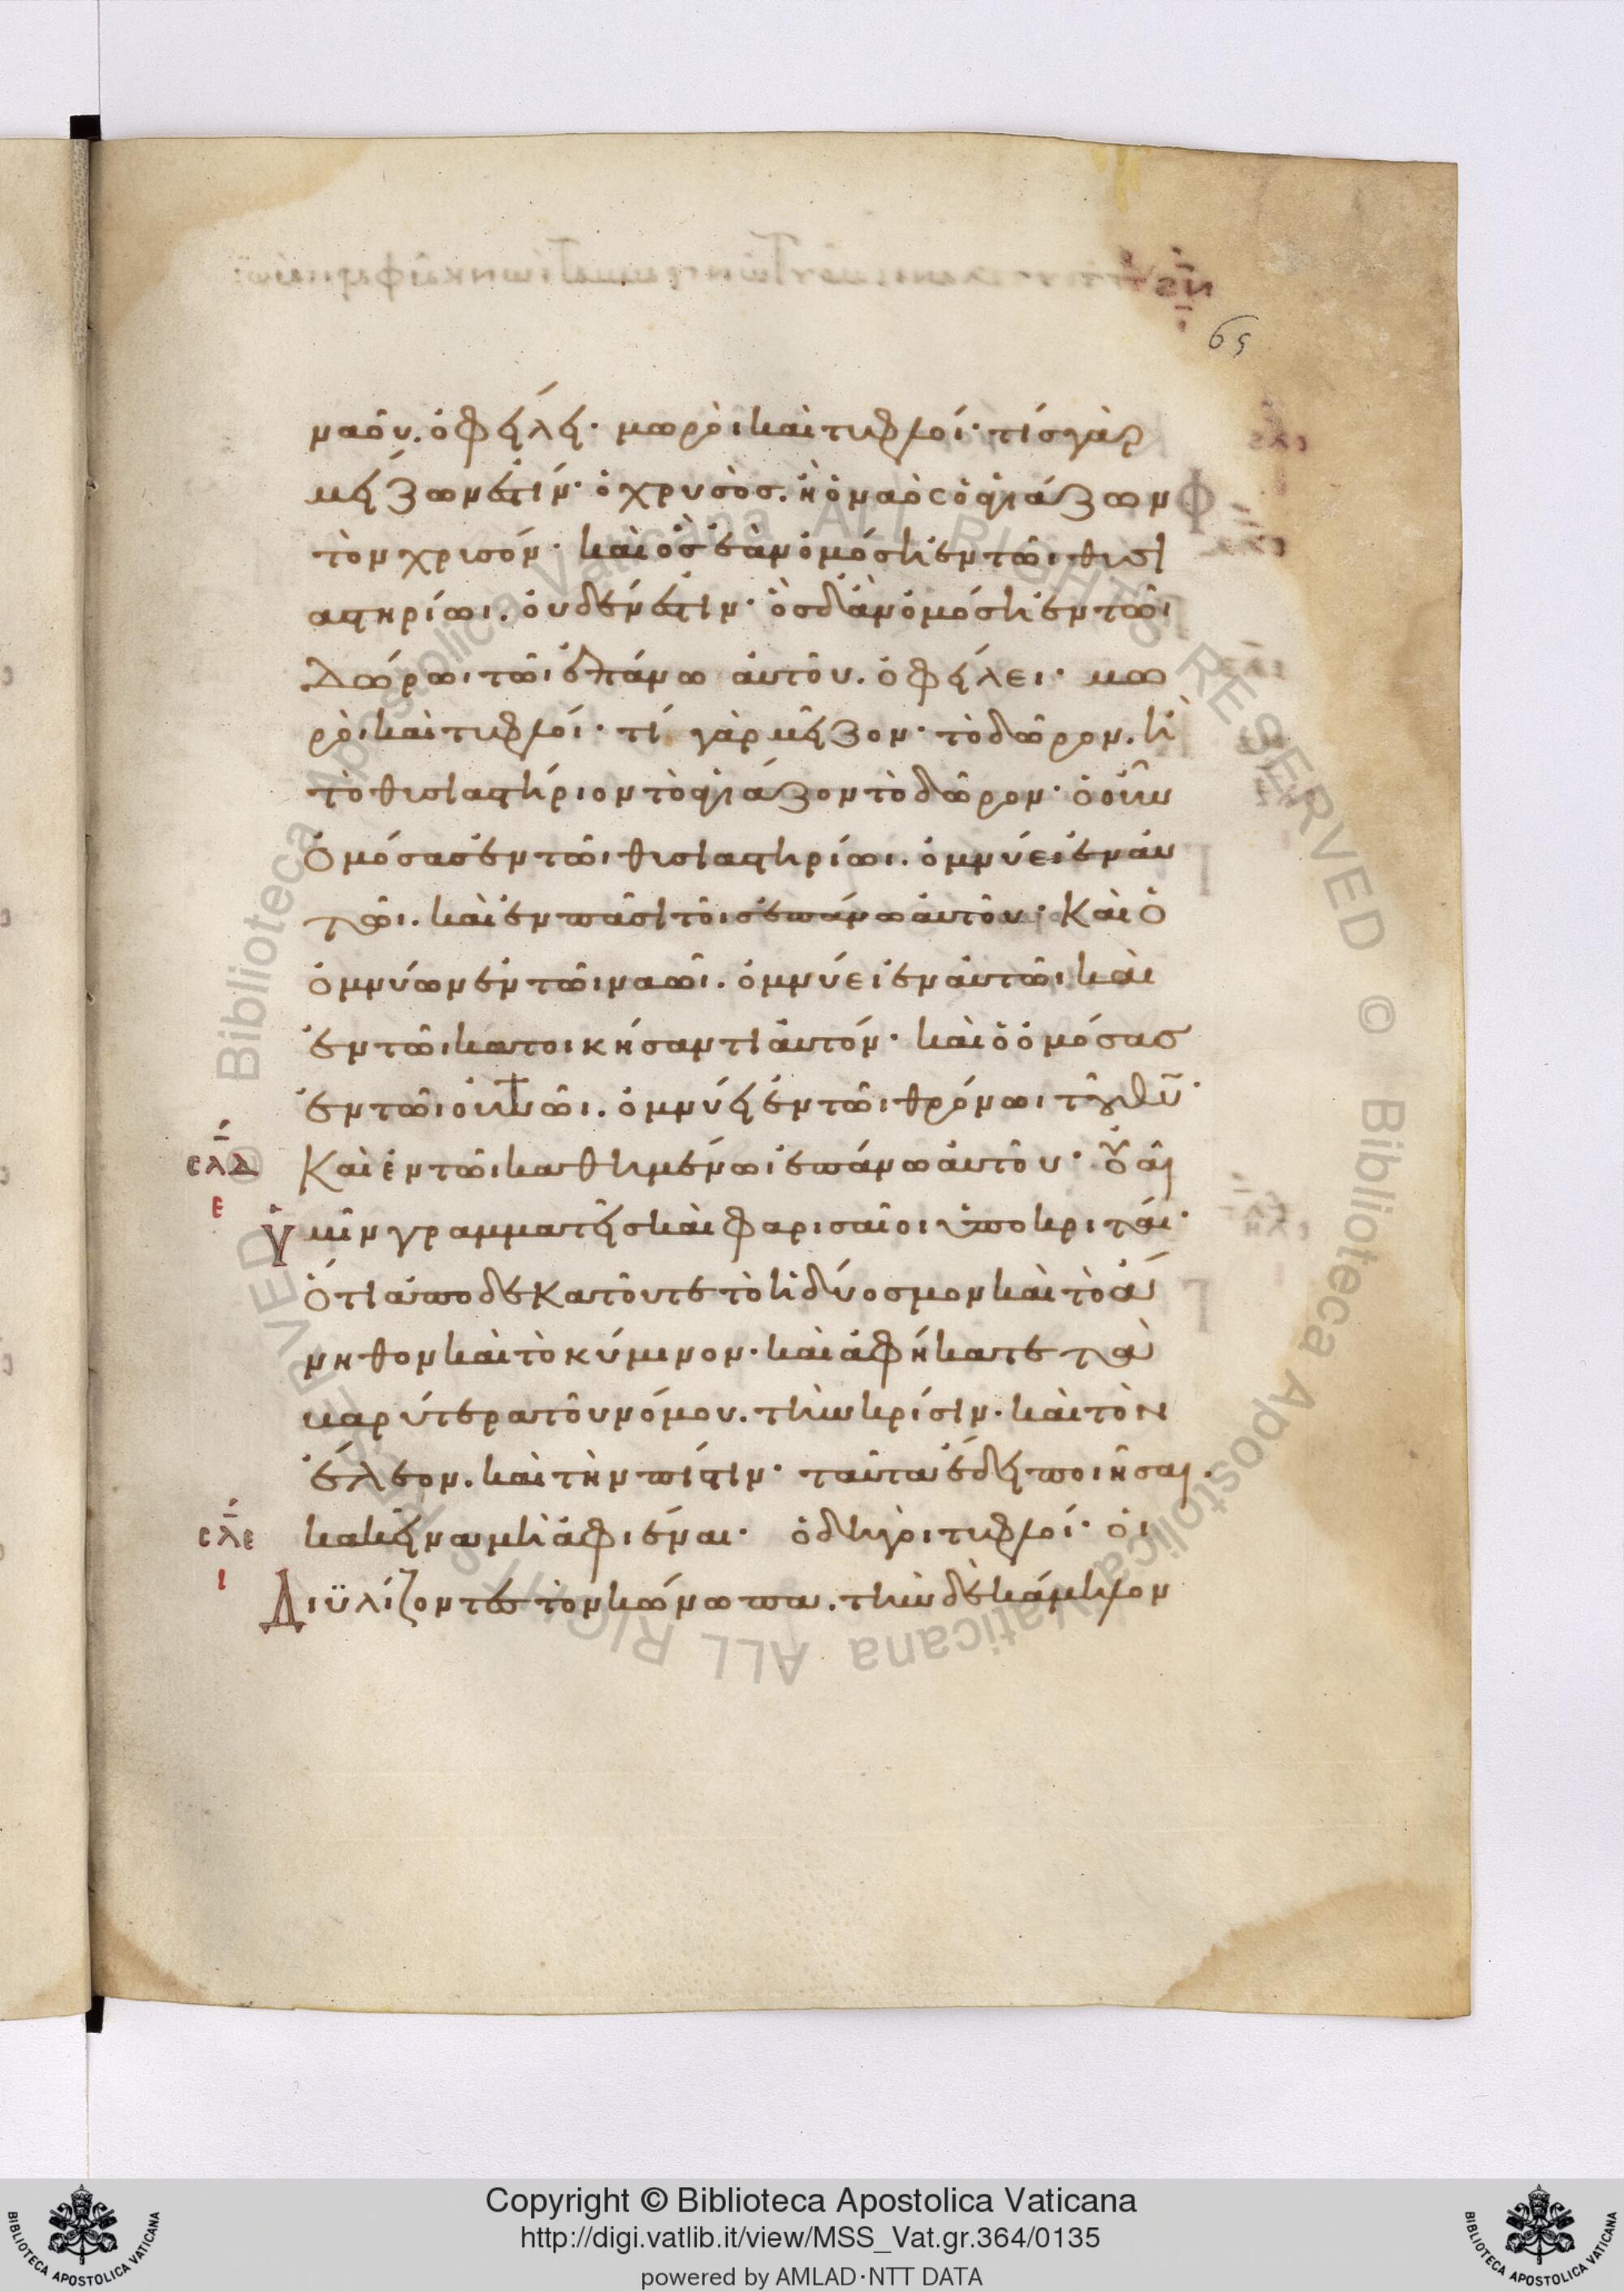 65
ναοῦ. ὀφείλει· μωροὶ καὶ τυφλοί· τίς γὰρ
μείζων ἐστίν· ὁ χρυσὸς. ἢ ὁ ναὸς ὁ ἁγιάζων
τὸν χρυσόν· καὶ ὃς ἐὰν ὀμόση ἐν τῶι θυσι
αστηρίωι. οὐδέν ἐστιν· ὃς δ' ἂν ὀμόση ἐν τῶι
δώρωι τῶι ἐπάνω αὐτοῦ. ὀφείλει· μω
ροὶ καὶ τυφλοί· τί γὰρ μεῖζον· τὸ δῶρον. ἢ
τὸ θυσιαστήριον τὸ ἁγιάζον τὸ δῶρον· ὁ οὖν
ὀμόσας ἐν τῶι θυσιαστηρίωι. ὀμνύει ἐν αὐ
τῶι. καὶ ἐν πᾶσι τοῖς ἐπάνω αὐτοῦ· Καὶ ὁ
ὀμνύων ἐν τῶι ναῶι. ὀμνύει ἐν αὐτῶι καὶ
ἐν τῶι κατοικήσαντι αὐτόν· καὶ ὁ ὀμόσας
ἐν τῶι οὐνῶι. ὀμνύει ἐν τῶι θρόνωι τοῦ θυ·
Καὶ ἐν τῶι καθημένωι ἐπάνω αὐτοῦ· οὐαὶ
σλδ
ε
ὑμῖν γραμματεῖς καὶ φαρισαῖοι ὑποκριταί·
ὅτι ἀποδεκατοῦτε τὸ ἡδύοσμον καὶ τὸ ἄ
νηθον καὶ τὸ κύμινον· καὶ ἀφήκατε τὰ
βαρύτερα τοῦ νόμου. τὴν κρίσιν. καὶ τὸν
ἔλεον. καὶ τὴν πίστιν· ταῦτα ἔδει ποιῆσαι.
κακεῖνα μὴ ἀφιέναι· ὁδηγοὶ τυφλοί· οἱ
σλε
ι
Διϋλίζοντες τὸν κώνωπα. τὴν δὲ κάμηλον
Copyright © Biblioteca Apostolica Vaticana
http://digi.vatlib.it/view/MSS_Vat.gr.364/0135
powered by AMLAD·NTT DATA
BIBLIOTECA APOSTOLICA VATICANA
BIBLIOTECA APOSTOLICA VATICANA
© Biblioteca Apostolica Vaticana ALL RIGHTS RESERVED
© Biblioteca Apostolica Vaticana ALL RIGHTS RESERVED